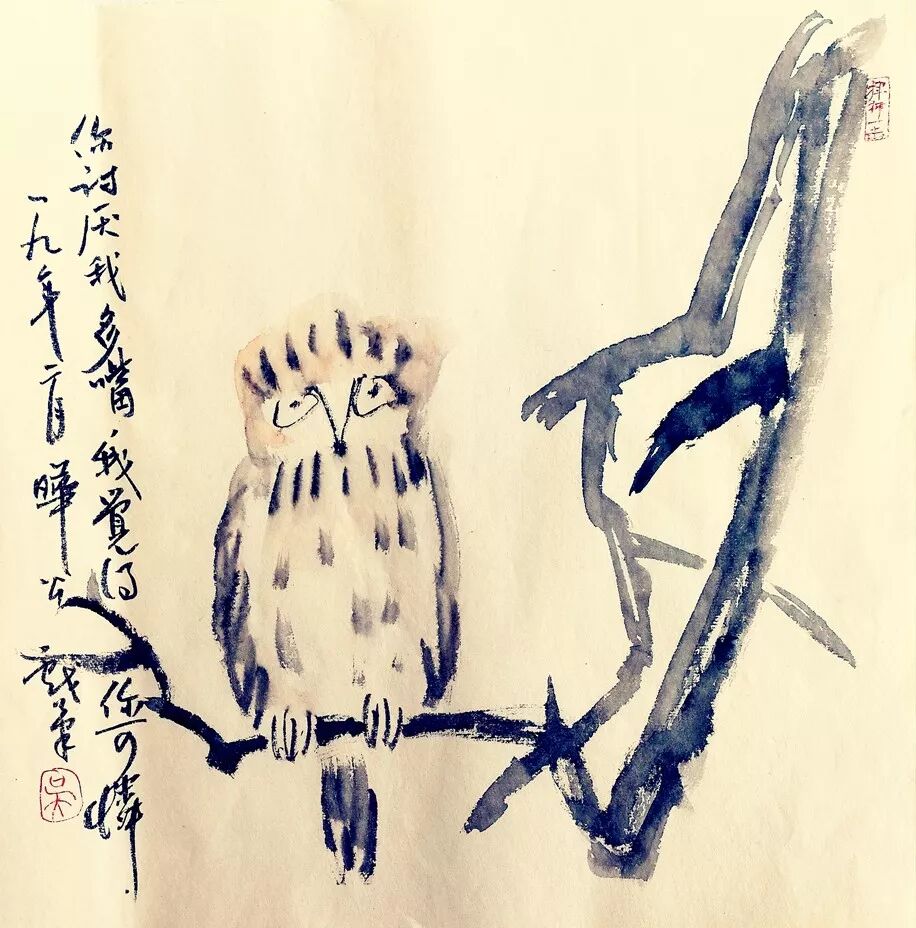 你讨厌我多嘴 我觉得你可怜
一九年二月 晔公戏笔
吴